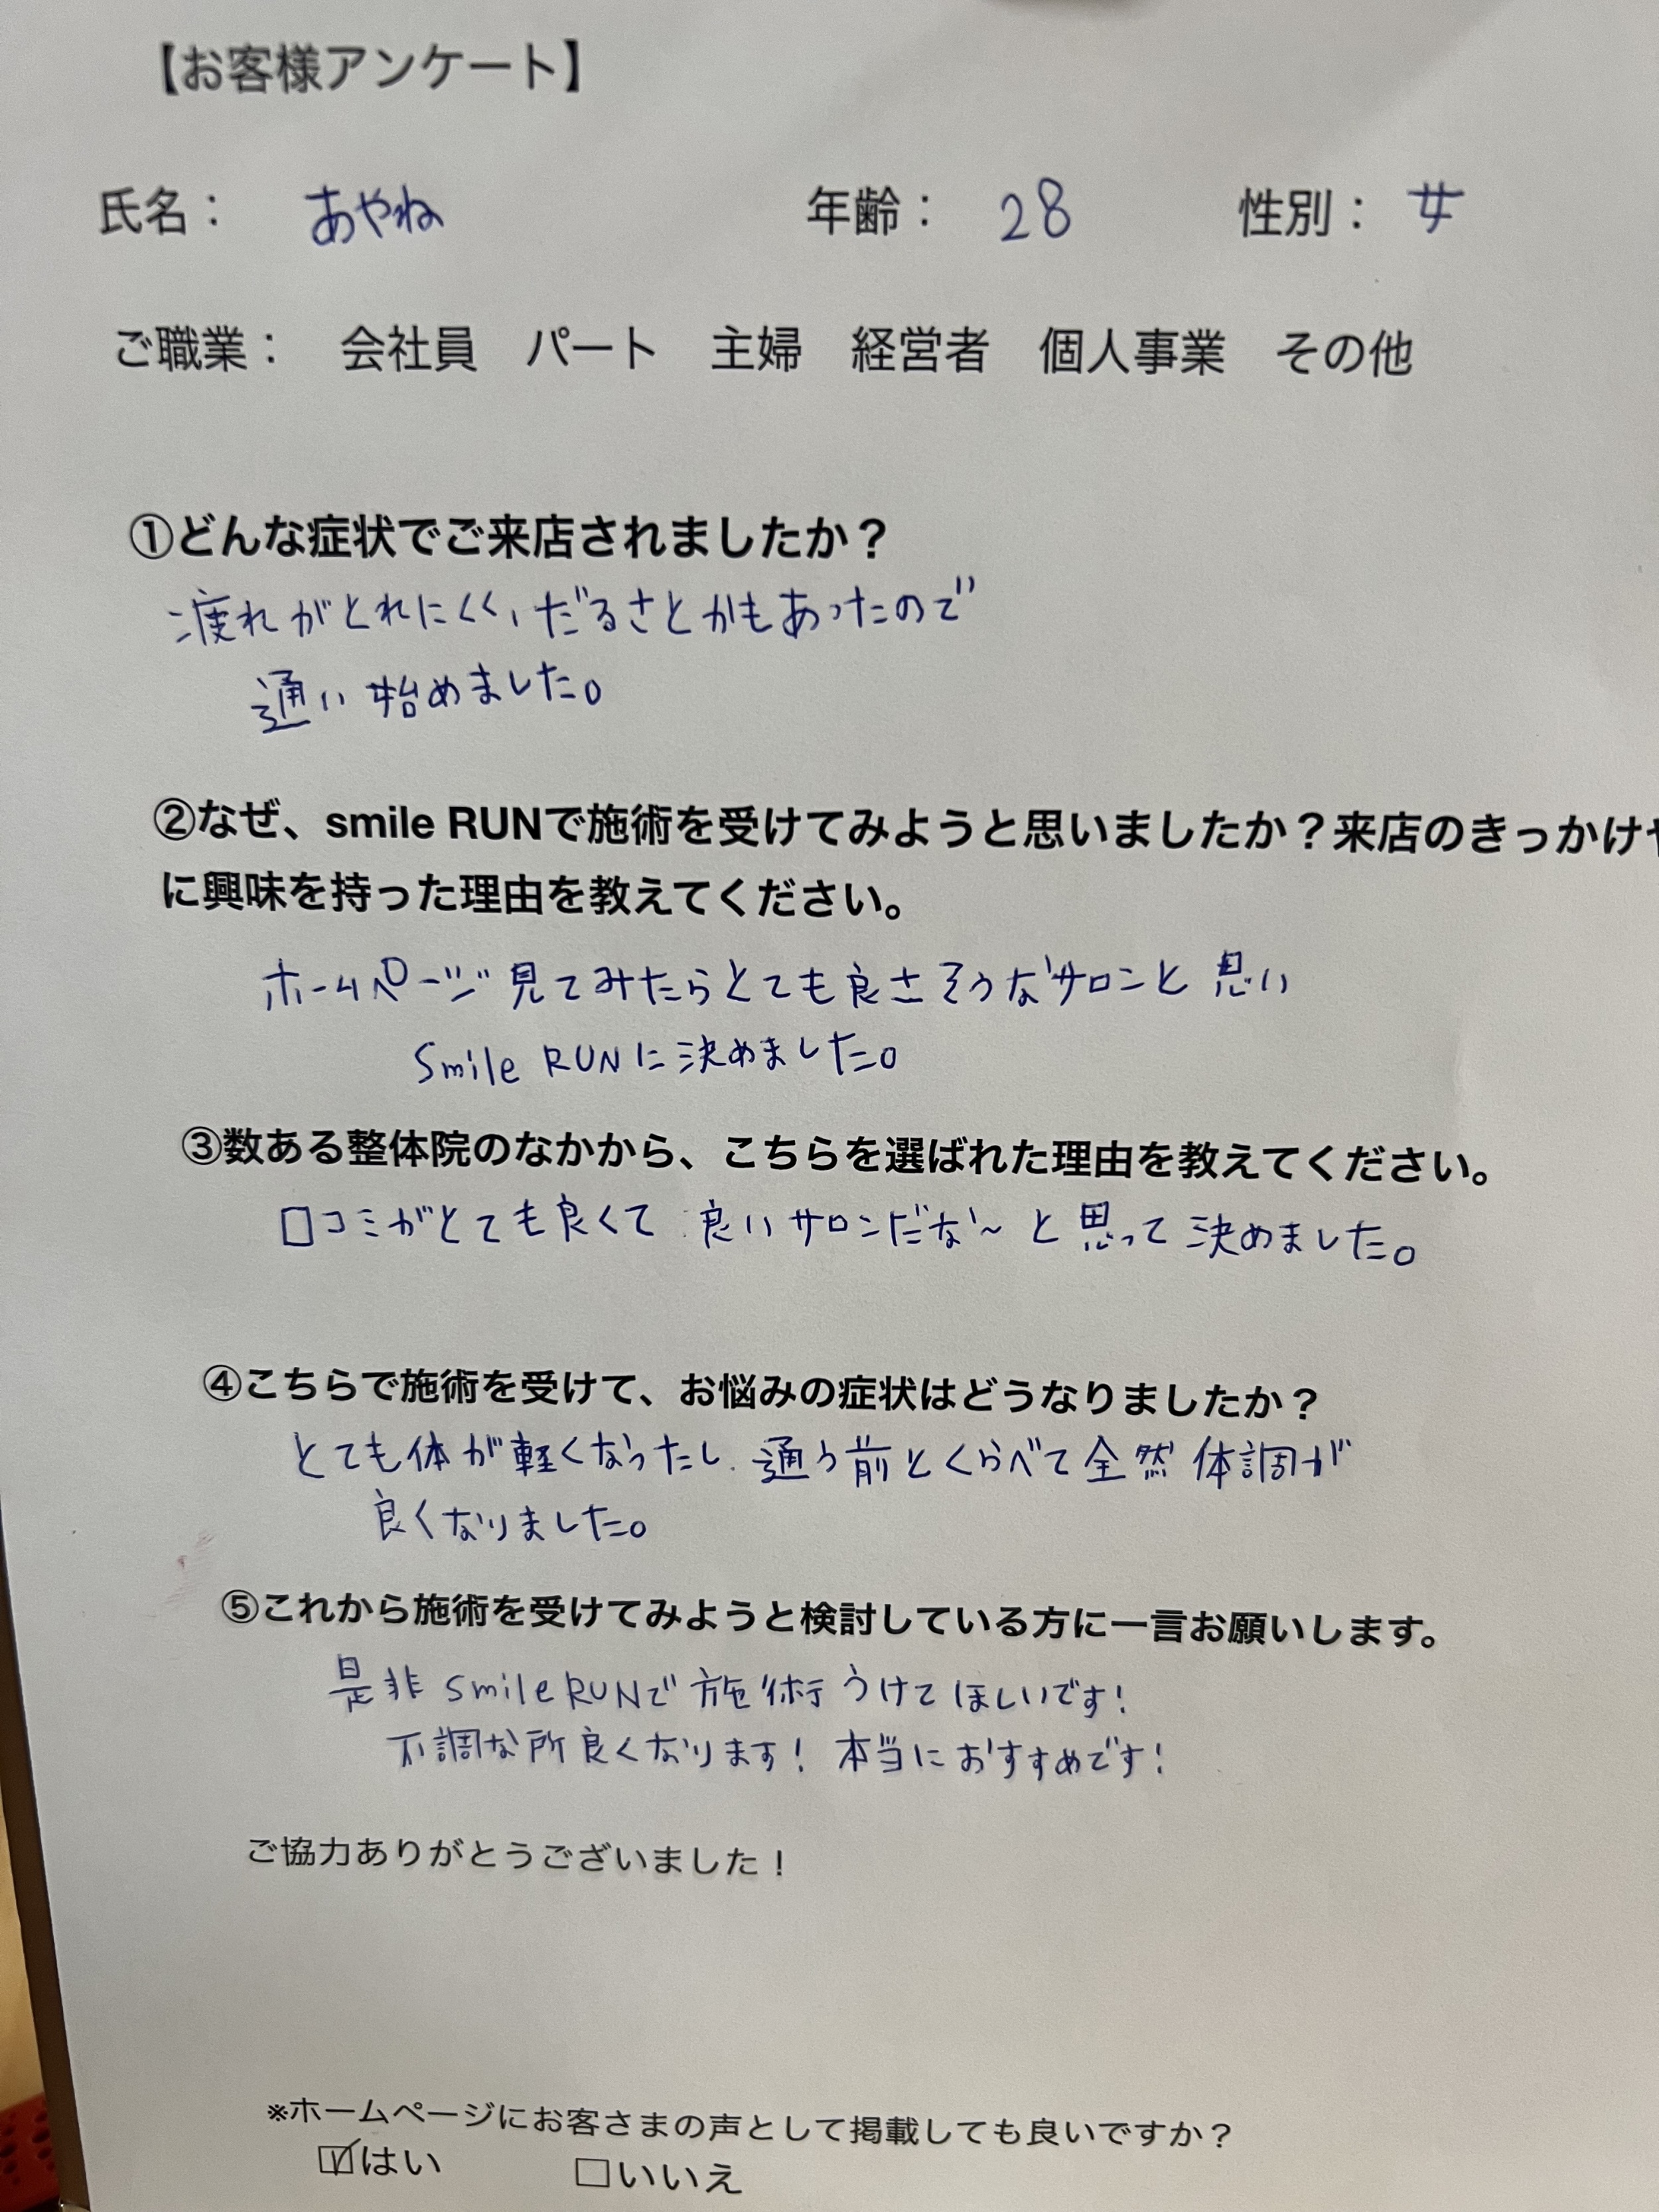 【お客様アンケート】
氏名： あやね 年齢： 28 性別： 女
ご職業： 会社員 パート 主婦 経営者 個人事業 その他
①どんな症状でご来店されましたか？
疲れがとれにくく、だるさとかもあったので
通い始めました。
②なぜ、smile RUNで施術を受けてみようと思いましたか？来店のきっかけや
に興味を持った理由を教えてください。
ホームページ見てみたらとても良さそうなサロンと思い
Smile RUNに決めました。
③数ある整体院のなかから、こちらを選ばれた理由を教えてください。
口コミがとても良くて 良いサロンだな〜と思って決めました。
④こちらで施術を受けて、お悩みの症状はどうなりましたか？
とても体が軽くなったし、通う前とくらべて全然体調が
良くなりました。
⑤これから施術を受けてみようと検討している方に一言お願いします。
是非 smile RUNで施術うけてほしいです！
不調な所良くなります！本当におすすめです！
ご協力ありがとうございました！
※ホームページにお客さまの声として掲載しても良いですか？
☑はい □いいえ